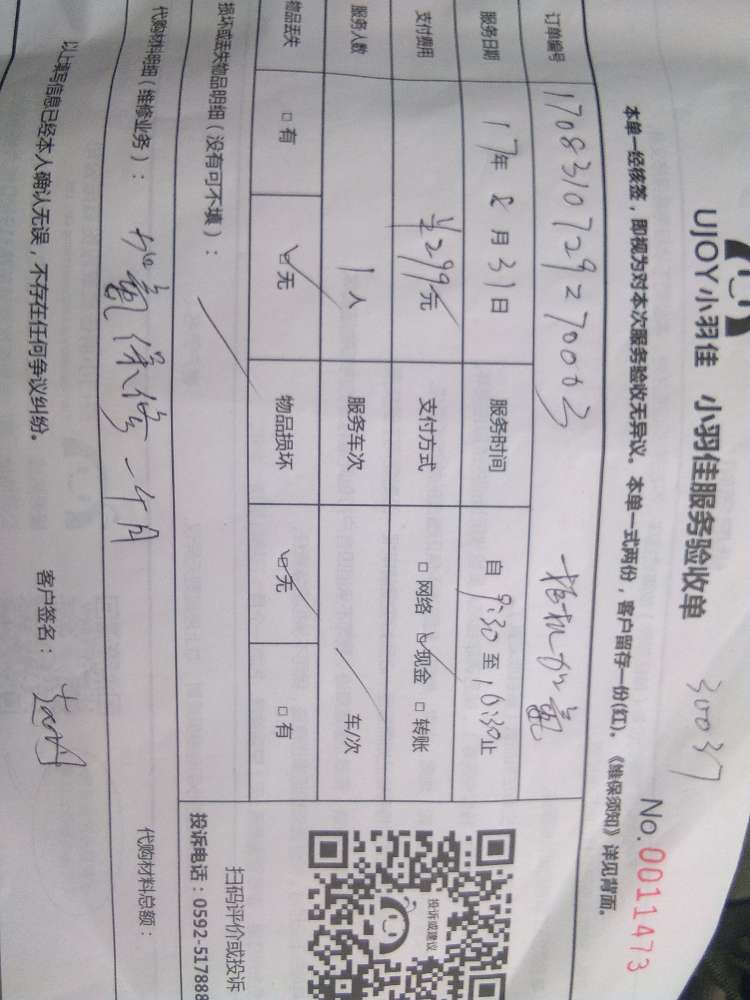 UJOY小羽佳 小羽佳服务验收单
30037
No.0011473
本单一经核签，即视为对本次服务验收无异议。本单一式两份，客户留存一份(红)。《维保须知》详见背面。
订单编号 1708310729270003 挂机加氟
服务日期 17年 8月 31日 服务时间 自 9:30 至 10:30止
支付费用 ¥299元 支付方式 □ 网络 ☑ 现金 □ 转账
服务人数 1人 服务车次 / 车/次
物品丢失 □ 有 ☑ 无 物品损坏 ☑ 无 □ 有
损坏或丢失物品明细（没有可不填）：
代购材料明细（维修业务）： 加氟保修一个月 代购材料总额：
以上填写信息已经本人确认无误，不存在任何争议纠纷。 客户签名：
投诉或建议
扫码评价或投诉
投诉电话：0592-517888